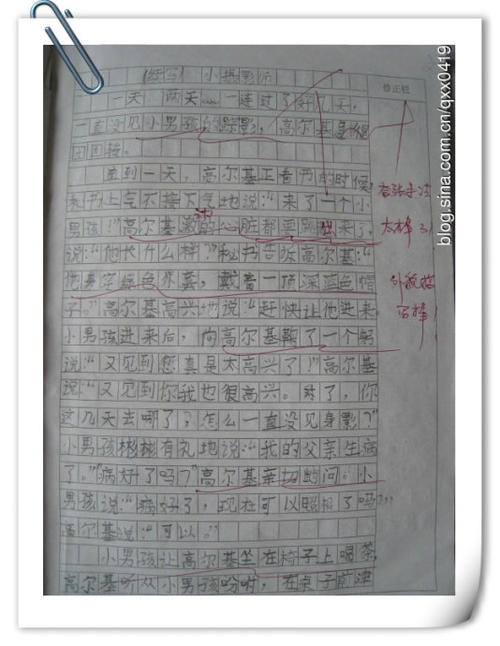 (续写) 小摄影师
一天、两天……一连过了好几天，
一直没见小男孩的踪影，高尔基急得
团团转。
直到一天，高尔基正看书的时候，
秘书上气不接下气地说：“来了一个小
男孩！”高尔基激动的心脏都要蹦出来了，
说：“他长什么样？”秘书告诉高尔基：“
他身穿绿色外套，戴着一顶深蓝色帽
子。”高尔基高兴地说：“赶快让他进来。
小男孩进来后，向高尔基鞠了一个躬
说：“又见到您真是太高兴了！”高尔基
说：“又见到你我也很高兴。对了，你
这几天去哪了？怎么一直没见身影？”
小男孩彬彬有礼地说：“我的父亲生病
了。”“病好了吗？”高尔基亲切的问。小
男孩说：“病好了，现在可以照相了吗？”
高尔基说：“可以。”
小男孩让高尔基坐在椅子上喝茶，
高尔基听从小男孩吩咐，在桌子前津
修正栏
夸张手法
太棒了！
外貌描
写棒！
blog.sina.com.cn/qxx0419